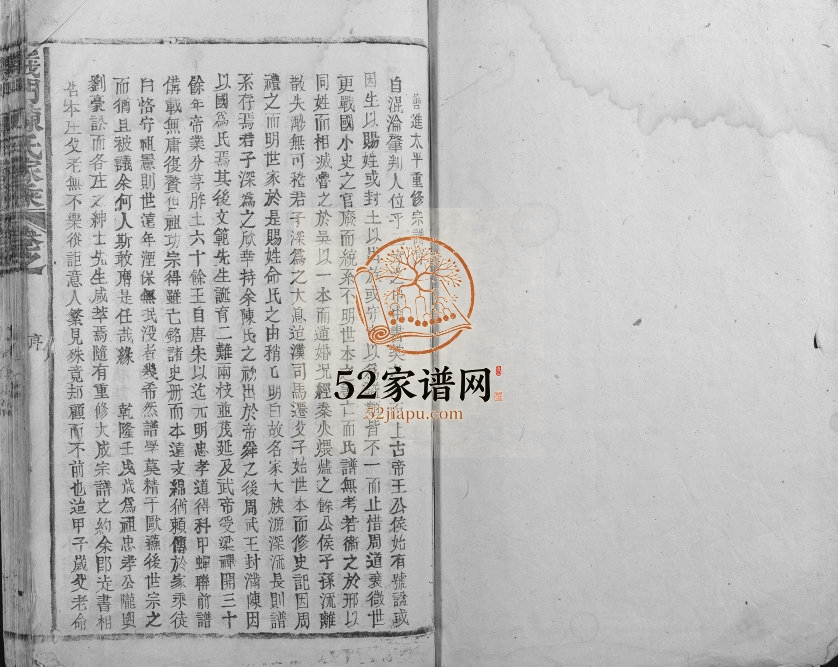 善進太平重修宗譜
自混淪肇判人位乎 上古帝王公侯始有號諡或
因生以賜姓或封土以 皆不一而止惜周道衰微世
更戰國小史之官廢而統系不明世本 亡而氏譜無考若衛之於邢以
同姓而相滅魯之於吳以一本而通婚况經秦火煨燼之餘公侯子孫流離
散失渺無可稽君子深為之大息迨漢司馬遷父子始世本而修史記因周
禮之而明世家於是賜姓命氏之由稍明白故名家大族源深流長則譜
系存焉君子深為之欣幸持余陳氏之初出於帝舜之後周武王封滿陳因
以國為氏焉其後文範先生誕育二難兩枝並茂延及武帝受梁禪開三十
餘年帝業分茅胙土六十餘王自唐宋以迄元明忠孝道得科甲蟬聯前譜
備載無庸復贅但祖功宗得雖亡銘諸史册而本遠支綿猶頼傳於家乘徒
曰恪守祖憲則世遠年湮保無㳇没者幾希然譜學莫精于歐蘇後世宗之
而猶且被議余何人斯敢膺是任哉緣 乾隆壬戌歲為祖忠孝公隴奥
劉豪訟而各庄之紳士先生咸萃焉隨有重修大成宗譜之約余即走書相
告本庄父老無不樂從詎意人繁見殊竟却顧而不前也迨甲子歲父老命
義門陳氏家乘
卷之
序
52家谱网
52jiapu.com